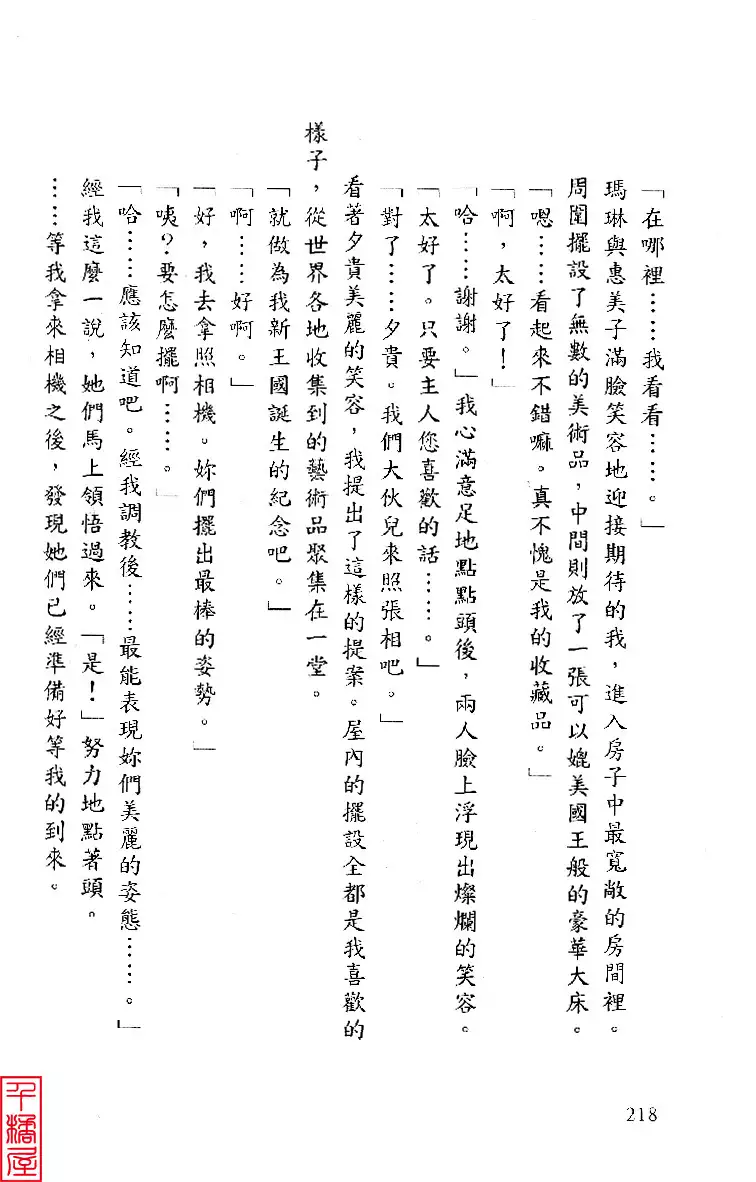 「在哪裡……我看看……。」
瑪琳與惠美子滿臉笑容地迎接期待的我，進入房子中最寬敞的房間裡。
周圍擺設了無數的美術品，中間則放了一張可以媲美國王般的豪華大床。
「嗯……看起來不錯嘛。真不愧是我的收藏品。」
「啊，太好了！」
「哈……謝謝。」我心滿意足地點點頭後，兩人臉上浮現出燦爛的笑容。
「太好了。只要主人您喜歡的話……。」
「對了……夕貴。我們大伙兒來照張相吧。」
看著夕貴美麗的笑容，我提出了這樣的提案。屋內的擺設全都是我喜歡的
樣子，從世界各地收集到的藝術品聚集在一堂。
「就做為我新王國誕生的紀念吧。」
「啊……好啊。」
「好，我去拿照相機。妳們擺出最棒的姿勢。」
「咦？要怎麼擺啊……。」
「哈……應該知道吧。經我調教後……最能表現妳們美麗的姿態……。」
經我這麼一說，她們馬上領悟過來。「是！」努力地點著頭。
……等我拿來相機之後，發現她們已經準備好等我的到來。
218
千橘屋